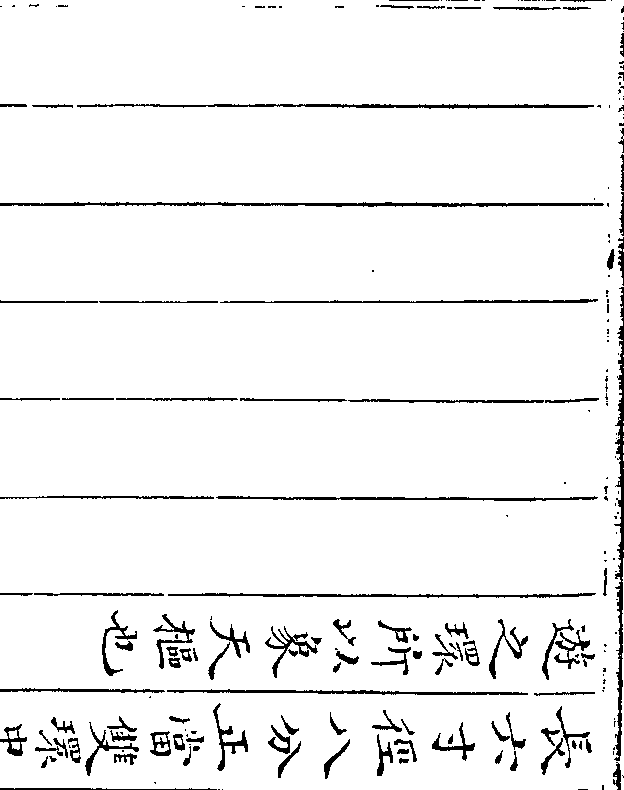 長六寸徑八分正當雙環中
遊之環所以象天樞也